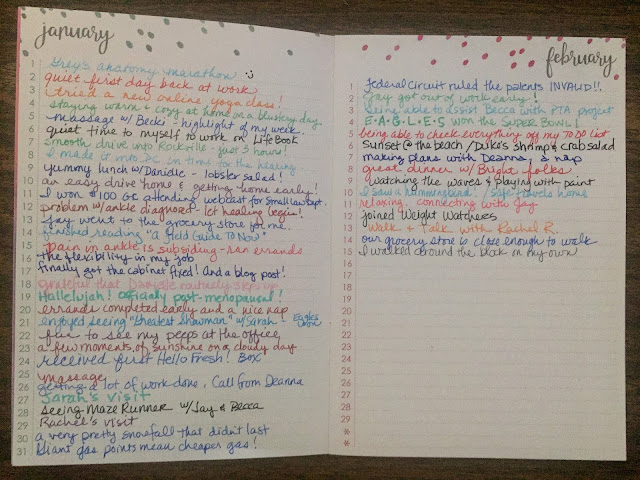 january
1 Grey's anatomy marathon
2 quiet first day back at work
3 i tried a new online yoga class!
4 staying warm & cozy at home on a blustery day
5 massage w/ Becki - highlight of my week.
6 quiet time to myself to work on LifeBook
7 smooth drive into Rockville - just 3 hours!
8 I made it into DC in time for the hearing
9 yummy lunch w/Danielle - lobster salad!
10 an easy drive home & getting home early!
11 I won $100 GC attending webcast for Small Law Dept.
12 problem w/ankle diagnosed - let healing begin!
13 Jay went to the grocery store for me.
14 finished reading "A Field Guide To Now"
15 pain in ankle is subsiding - ran errands
16 the flexibility in my job
17 finally got the cabinet fixed! And a blog post!
18 grateful that Danielle routinely steps up
19 Hallelujah! Officially post-menopausal!
20 errands completed early and a nice nap
21 enjoyed seeing "Greatest Showman" w/Sarah - Eagles won
22 fun to see my peeps at the office
23 a few moments of sunshine on a cloudy day
24 received first Hello Fresh! Box
25 massage
26 getting a lot of work done. Call from Deanna
27 Sarah's visit
28 seeing Maze Runner w/Jay & Becca
29 Rachel's visit
30 a very pretty snowfall that didn't last
31 Giant gas points mean cheaper gas!
february
1 Federal Circuit ruled the patents INVALID!!
2 Jay got out of work early!
3 being able to assist Becca with PTA project
4 E·A·G·L·E·S won the SUPER BOWL!
5 being able to check everything off my TO DO list
6 sunset @ the beach / Duke's shrimp & crab salad
7 making plans with Deanna, a nap
8 great dinner w/ Bright folks
9 watching the waves & playing with paint
10 I saw a hummingbird! Safe travels home
11 relaxing. connecting w/ Jay
12 joined Weight Watchers
13 Walk + Talk with Rachel R.
14 our grocery store is close enough to walk
15 I walked around the block on my own
16
17
18
19
20
21
22
23
24
25
26
27
28
29
*
*